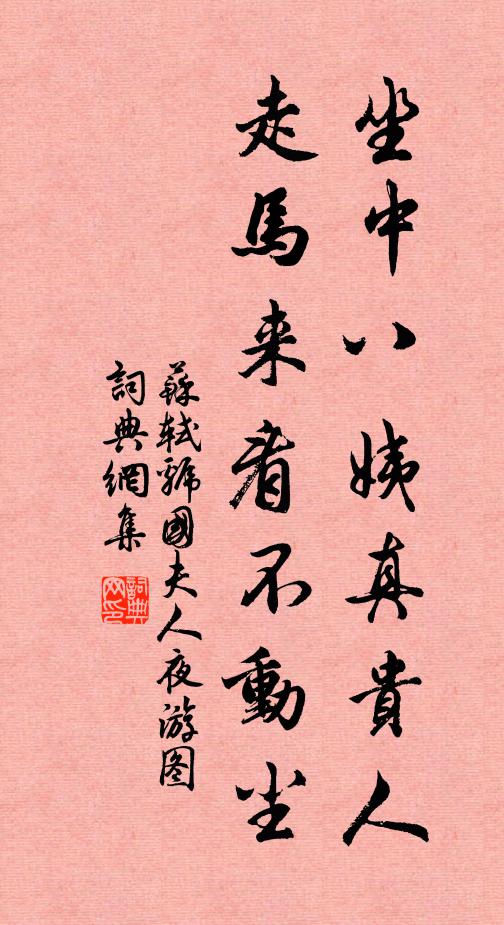 坐中八姨真貴人
走馬来看不動尘
蘇軾虢國夫人夜游图
詞典網集
詞典网印